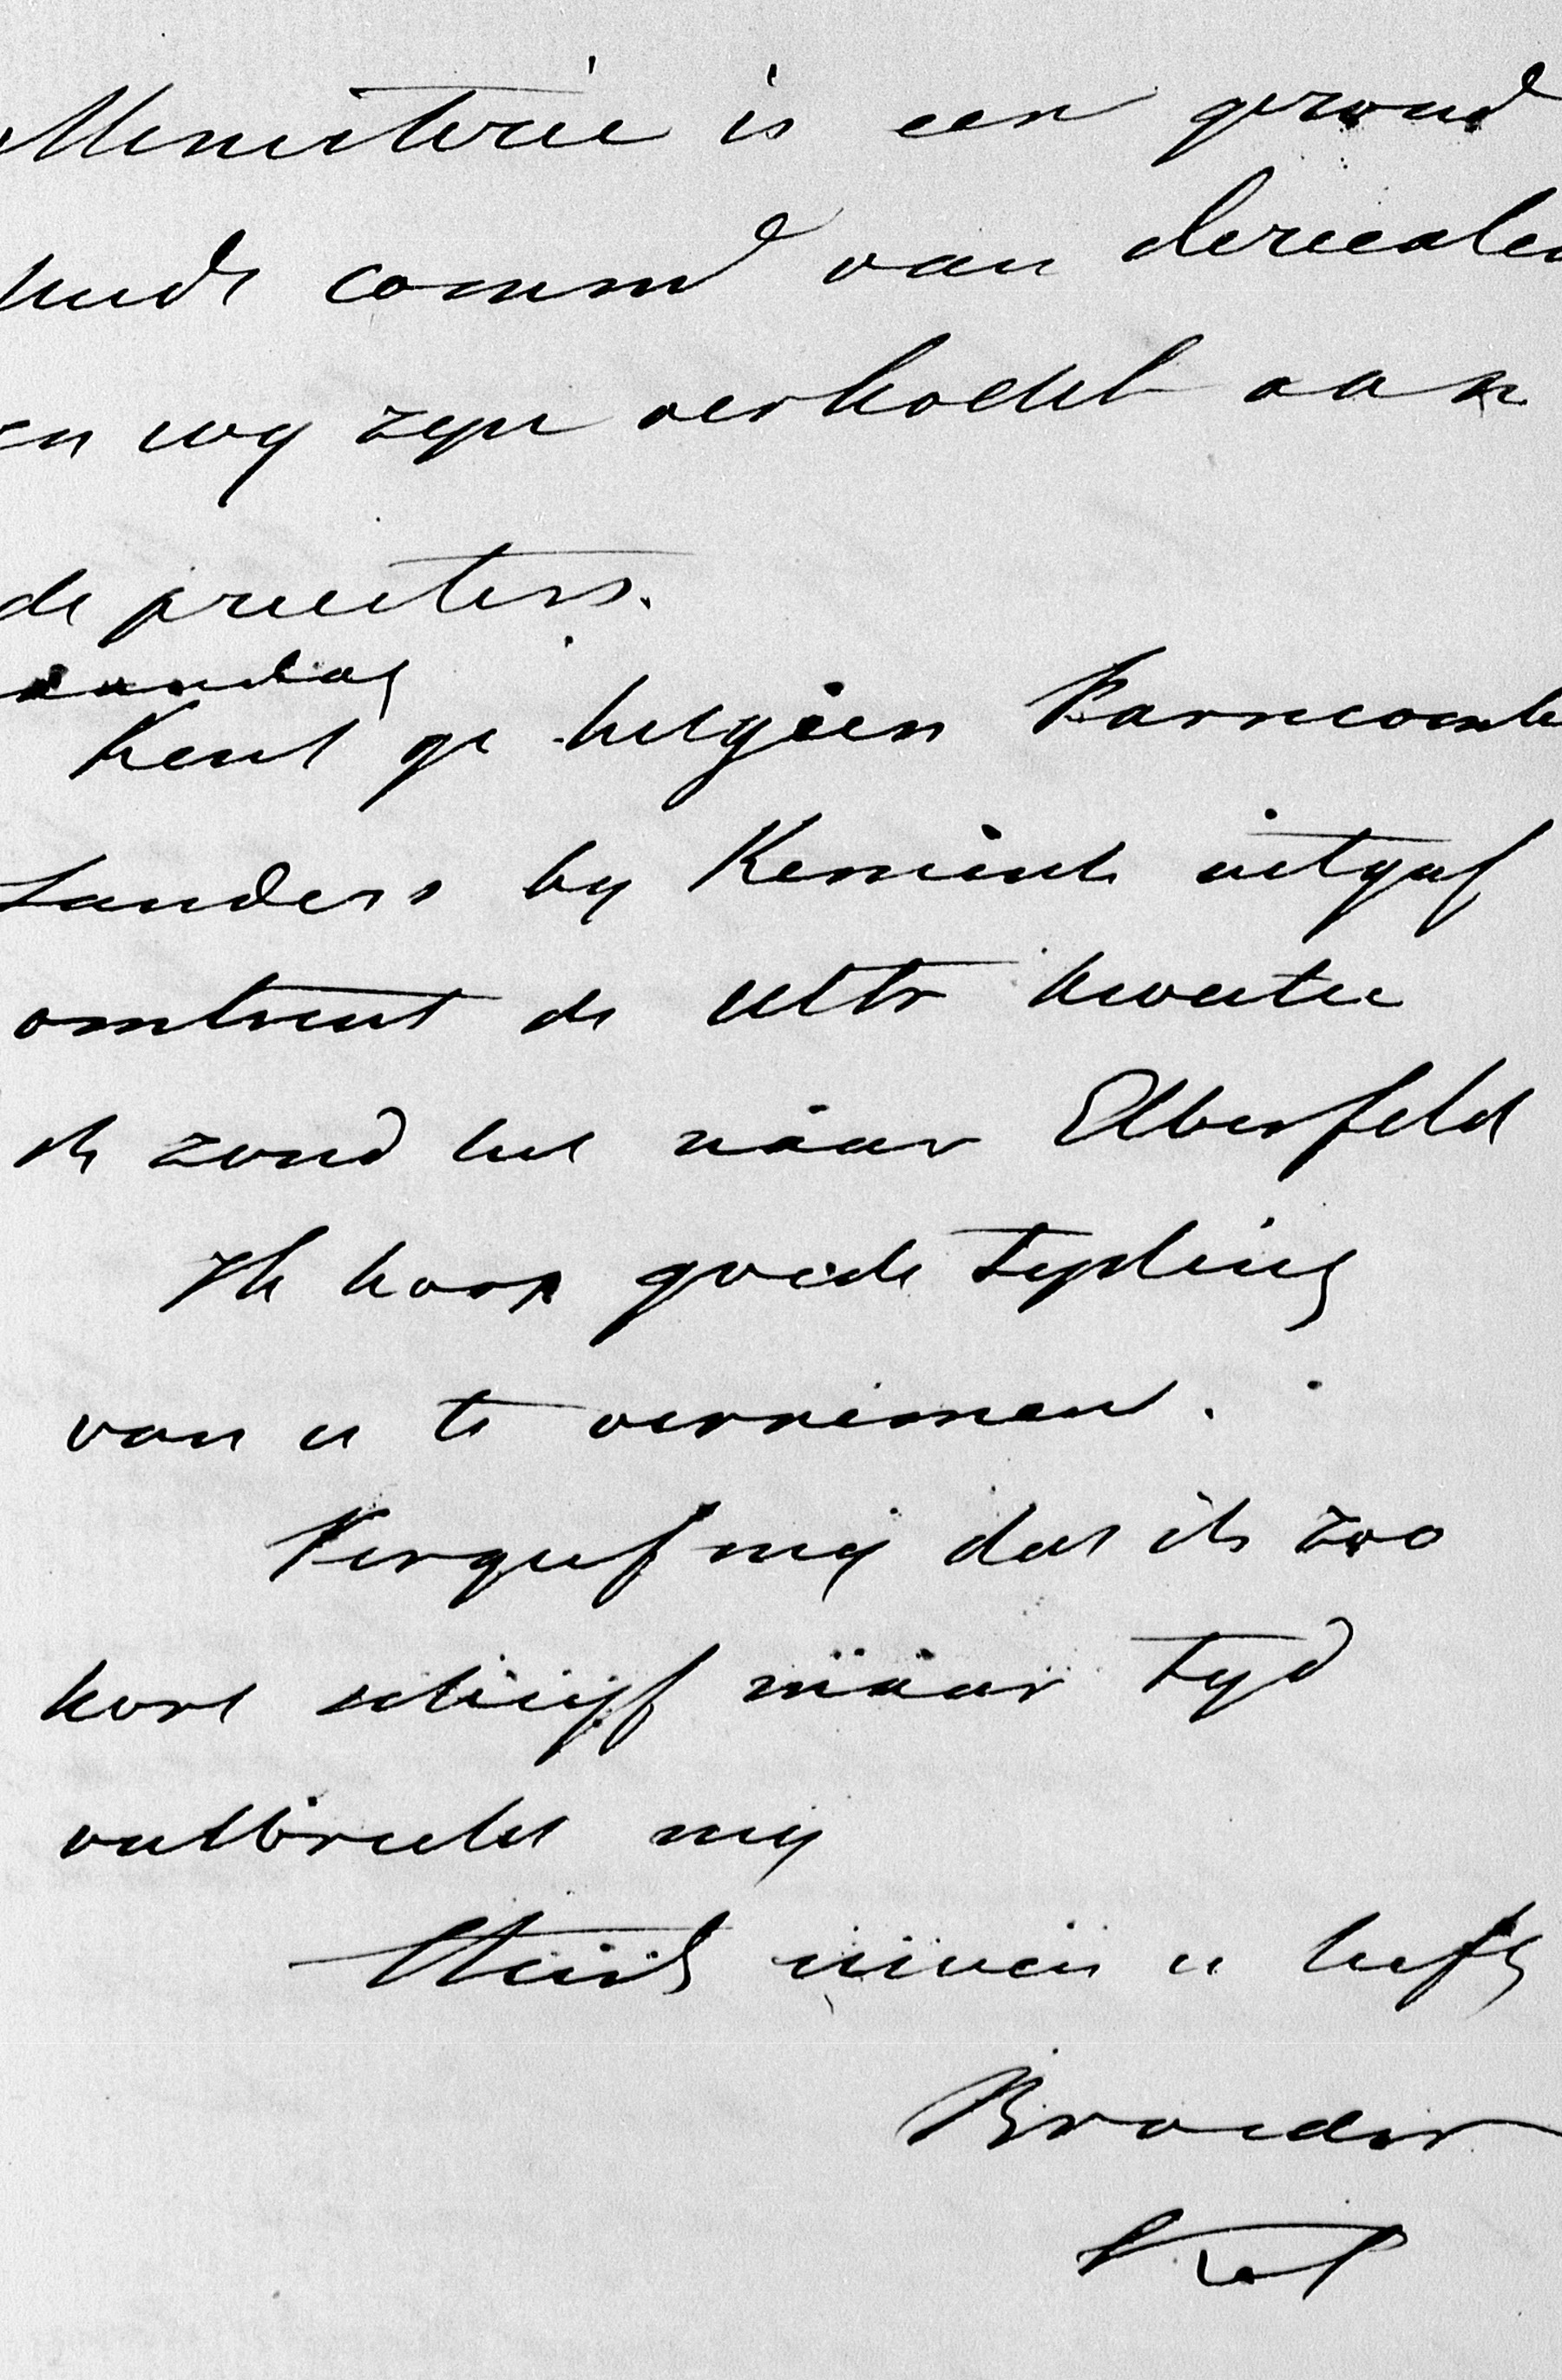 Ministerie is een grond
van clericalen
en wy zyn verkocht aan
de priesters.
Kent ge hetgeen
Sanders by Kemink uitgaf
omtrent de Utr kwestie
ik zond het naar Elberfeld
Ik hoop goede tyding
van u te vernemen.
Vergeef my dat ik zoo
kort schryf maar tyd
ontbreekt my
Steeds u liefh
Broeder